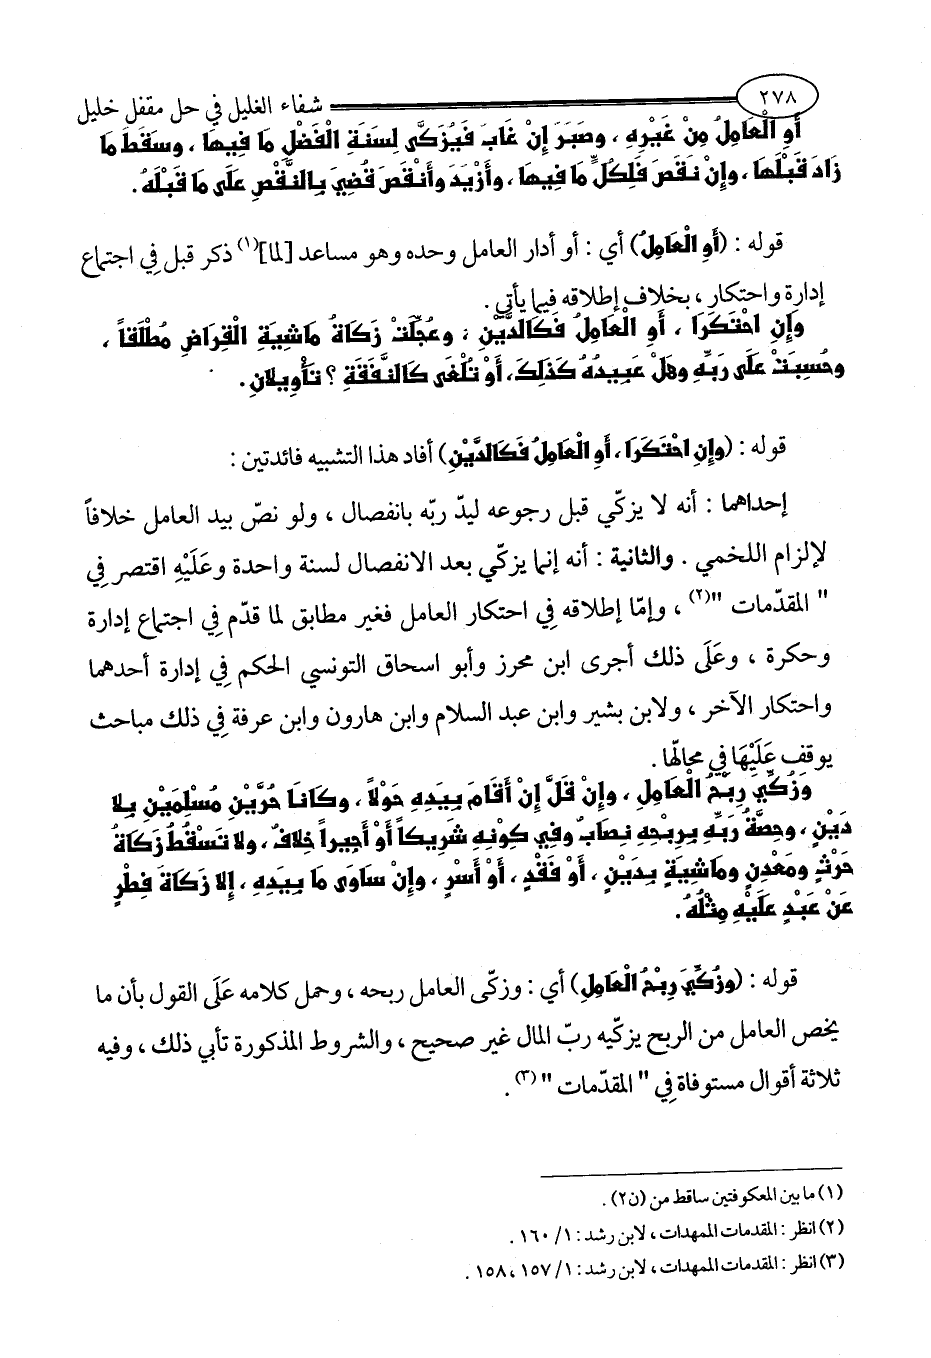 ٢٧٨ شفاء الغليل في حل مقفل خليل
أَوِ الْعَامِلُ مِنْ غَيْرِهِ ، وصَبَرَ إِنْ غَابَ فَيُزَكَّى لِسَنَةِ الْفَضْلِ مَا فِيهَا ، وسَقَطَ مَا
زَادَ قَبْلَهَا ، وإِنْ نَقَصَ فَلِكُلٍّ مَا فِيهَا ، وأَزْيَدَ وأَنْقَصَ قُضِيَ بِالنَّقْصِ عَلَى مَا قَبْلَهُ .
قوله : (أَوِ الْعَامِلُ) أي : أو أدار العامل وحده وهو مساعد [لما](١) ذكر قبل فِي اجتماع
إدارة واحتكار ، بخلاف إطلاقه فيما يأتي .
وَإِنِ احْتَكَرَا ، أَوِ الْعَامِلُ فَكَالدَّيْنِ ، وعُجِّلَتْ زَكَاةُ مَاشِيَةِ الْقِرَاضِ مُطْلَقاً ،
وحُسِبَتْ عَلَى رَبِّهِ وهَلْ عَبِيدُهُ كَذَلِكَ، أَوْ تُلْغَى كَالنَّفَقَةِ ؟ تَأْوِيلانِ .
قوله : (وإِنِ احْتَكَرَا ، أَوِ الْعَامِلُ فَكَالدَّيْنِ) أفاد هذا التشبيه فائدتين :
إحداهما : أنه لا يزكّي قبل رجوعه ليدّ ربّه بانفصال ، ولو نصّ بيد العامل خلافاً
لإلزام اللخمي . والثانية : أنه إنما يزكّي بعد الانفصال لسنة واحدة وعَلَيْهِ اقتصر فِي
" المقدّمات "(٢) ، وإمّا إطلاقه فِي احتكار العامل فغير مطابق لما قدّم فِي اجتماع إدارة
وحكرة ، وعَلَى ذلك أجرى ابن محرز وأبو اسحاق التونسي الحكم فِي إدارة أحدهما
واحتكار الآخر ، ولابن بشير وابن عبد السلام وابن هارون وابن عرفة فِي ذلك مباحث
يوقف عَلَيْهَا فِي محالّها .
وَزُكِّيَ رِبْحُ الْعَامِلِ ، وإِنْ قَلَّ إِنْ أَقَامَ بِيَدِهِ حَوْلاً ، وكَانَا حُرَّيْنِ مُسْلِمَيْنِ بِلا
دَيْنٍ ، وحِصَّةُ رَبِّهِ بِرِبْحِهِ نِصَابٌ وفِي كَوْنِهِ شَرِيكاً أَوْ أَجِيراً خِلافٌ ، ولا تَسْقُطُ زَكَاةُ
حَرْثٍ ومَعْدِنٍ ومَاشِيَةٍ بِدَيْنٍ ، أَوْ فَقْدٍ ، أَوْ أَسْرٍ ، وإِنْ سَاوَى مَا بِيَدِهِ ، إِلا زَكَاةَ فِطْرٍ
عَنْ عَبْدٍ عَلَيْهِ مِثْلُهُ .
قوله : (وزُكِّيَ رِبْحُ الْعَامِلِ) أي : وزكّى العامل ربحه ، وحمل كلامه عَلَى القول بأن ما
يخص العامل من الربح يزكّيه ربّ المال غير صحيح ، والشروط المذكورة تأبي ذلك ، وفيه
ثلاثة أقوال مستوفاة فِي " المقدّمات "(٣) .
(١) ما بين المعكوفتين ساقط من (ن٢) .
(٢) انظر : المقدمات الممهدات ، لابن رشد : ١/ ١٦٠ .
(٣) انظر : المقدمات الممهدات ، لابن رشد : ١/ ١٥٧ ، ١٥٨ .